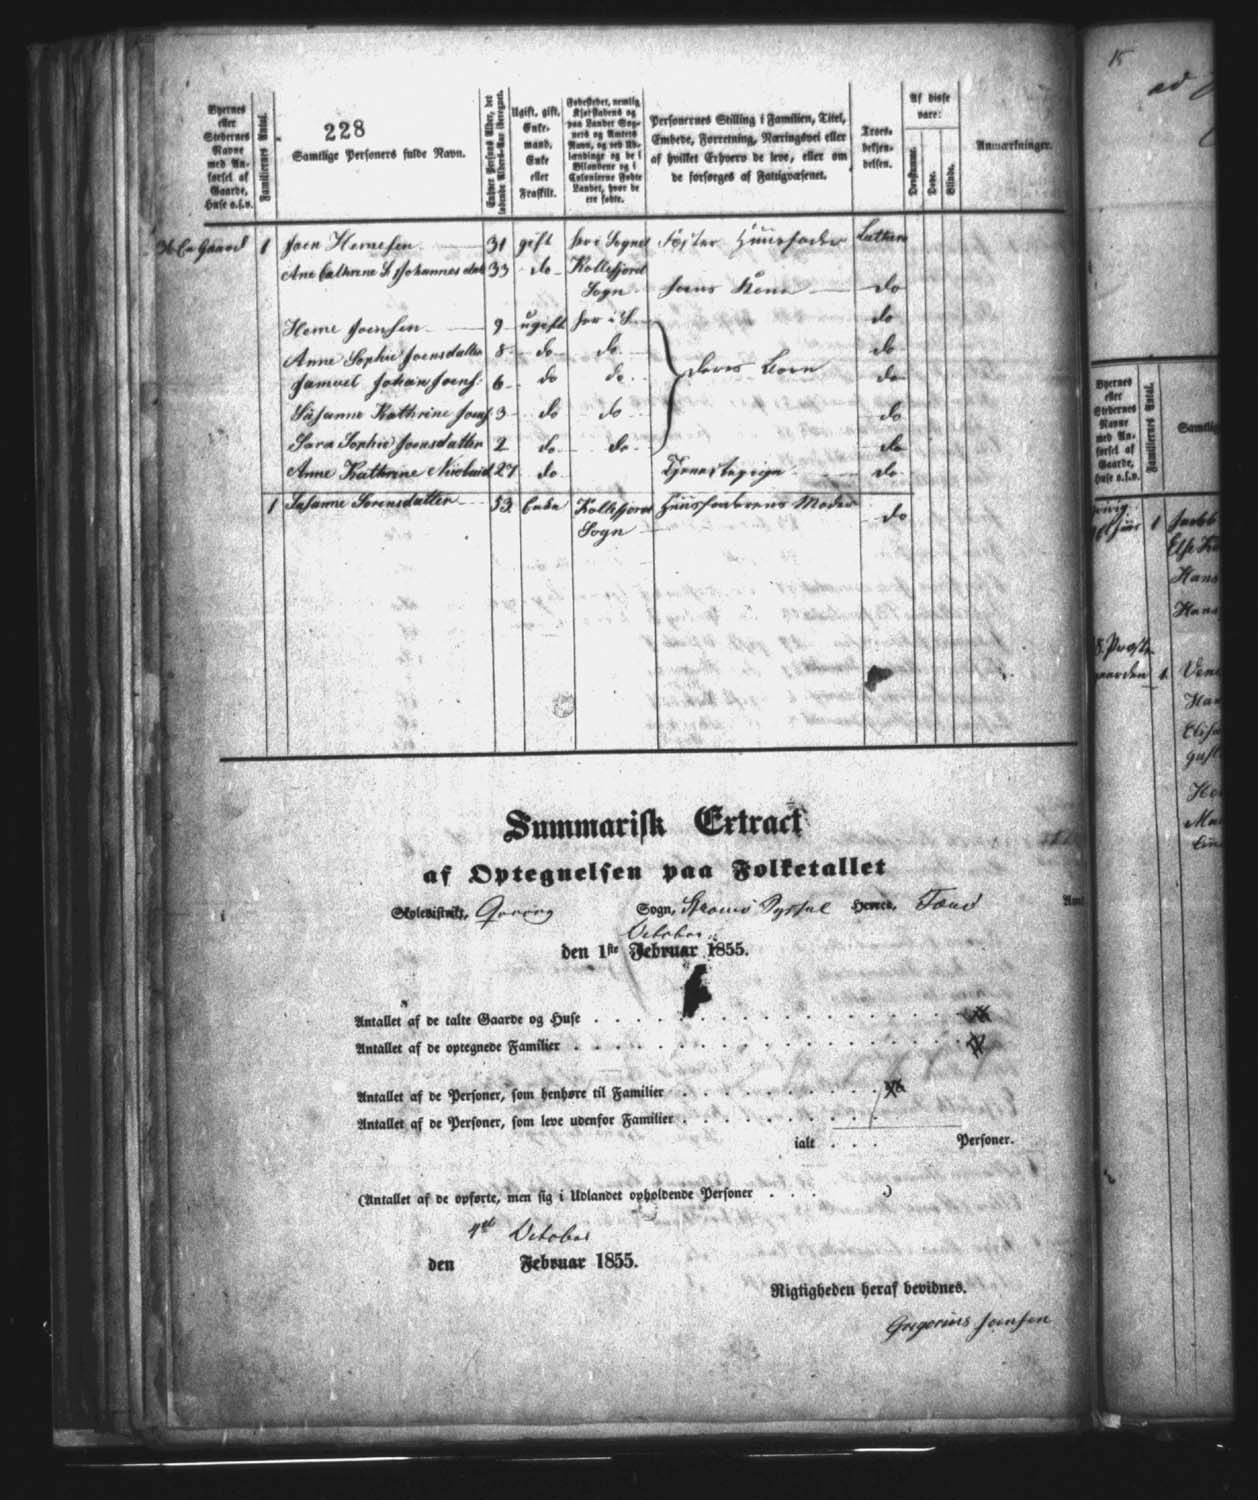 228
Byernes eller Stedernes Navne med Anførsel af Gaarde, Huse o.s.v.
Familiernes Antal.
Samtlige Personers fulde Navn.
Enhver Persons Alder, det løbende Alders-Aar iberegnet.
Ugift, gift, Enkemand, Enke eller Fraskilt.
Fødestedet, nemlig Kjøbstadens og paa Landet Sognets og Amtets Navn, og ved Udlændinge og de i Bilandene og i Colonierne Fødte Landet, hvor de ere fødte.
Personernes Stilling i Familien, Titel, Embede, Forretning, Næringsvei eller af hvilket Erhverv de leve, eller om de forsørges af Fattigvæsenet.
Troesbekjendelsen.
Af disse vare:
Døvstumme.
Døve.
Blinde.
Anmærkninger.
En Gaard 1 Joen Hemesen 31 gift her i Sognet Fæster Huusfader Luthern
Ane Cathrine S. Johannesdat 33 do Kollefjord Sogn hans Kone do
Heme Joensen 9 ugift her i S do
Anne Sophie Joensdatter 8 do do do
Samuel Johan Joens: 6 do do deres Børn do
Susanne Kathrine Joens 3 do do do
Sara Sophie Joensdatter 2 do do do
Anne Kathrine 27 do Tjenestepige do
1 Susanne Sørensdatter 53 Enke Kollefjord Sogn Huusfaderens Moder do
Summarisk Extract
af Optegnelsen paa Folketallet
Skoledistrikt, Qvivig Sogn, Strømø Syssel Herred, Færø Amt
October
den 1ste Februar 1855.
Antallet af de talte Gaarde og Huse
Antallet af de optegnede Familier
Antallet af de Personer, som henhøre til Familier
Antallet af de Personer, som leve udenfor Familier
ialt Personer.
(Antallet af de opførte, men sig i Udlandet opholdende Personer )
4de October
den Februar 1855.
Rigtigheden heraf bevidnes.
Gregorius Joensen
15
Byernes eller Stedernes Navne med Anførsel af Gaarde, Huse o.s.v.
Familiernes Antal.
1 Jacob
Hans
Hans
1